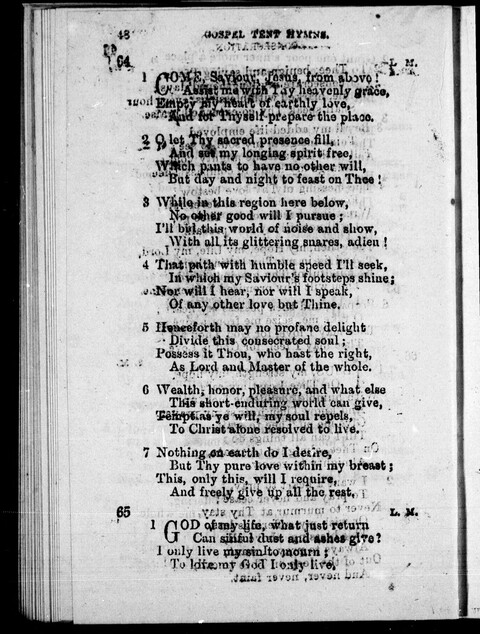 48 GOSPEL TENT HYMNS.
64 L. M.
1 COME, Saviour, Jesus, from above!
Assist me with Thy heavenly grace,
Empty my heart of earthly love,
And for Thyself prepare the place.
2 O let Thy sacred presence fill,
And set my longing spirit free,
Which pants to have no other will,
But day and night to feast on Thee!
3 While in this region here below,
No other good will I pursue;
I'll bid this world of noise and show,
With all its glittering snares, adieu!
4 That path with humble speed I'll seek,
In which my Saviour's footsteps shine;
Nor will I hear, nor will I speak,
Of any other love but Thine.
5 Henceforth may no profane delight
Divide this consecrated soul;
Possess it Thou, who hast the right,
As Lord and Master of the whole.
6 Wealth, honor, pleasure, and what else
This short-enduring world can give,
Tempt as ye will, my soul repels,
To Christ alone resolved to live.
7 Nothing on earth do I desire,
But Thy pure love within my breast;
This, only this, will I require,
And freely give up all the rest.
65 L. M.
1 GOD of my life, what just return
Can sinful dust and ashes give?
I only live my sin to mourn;
To love my God I only live.